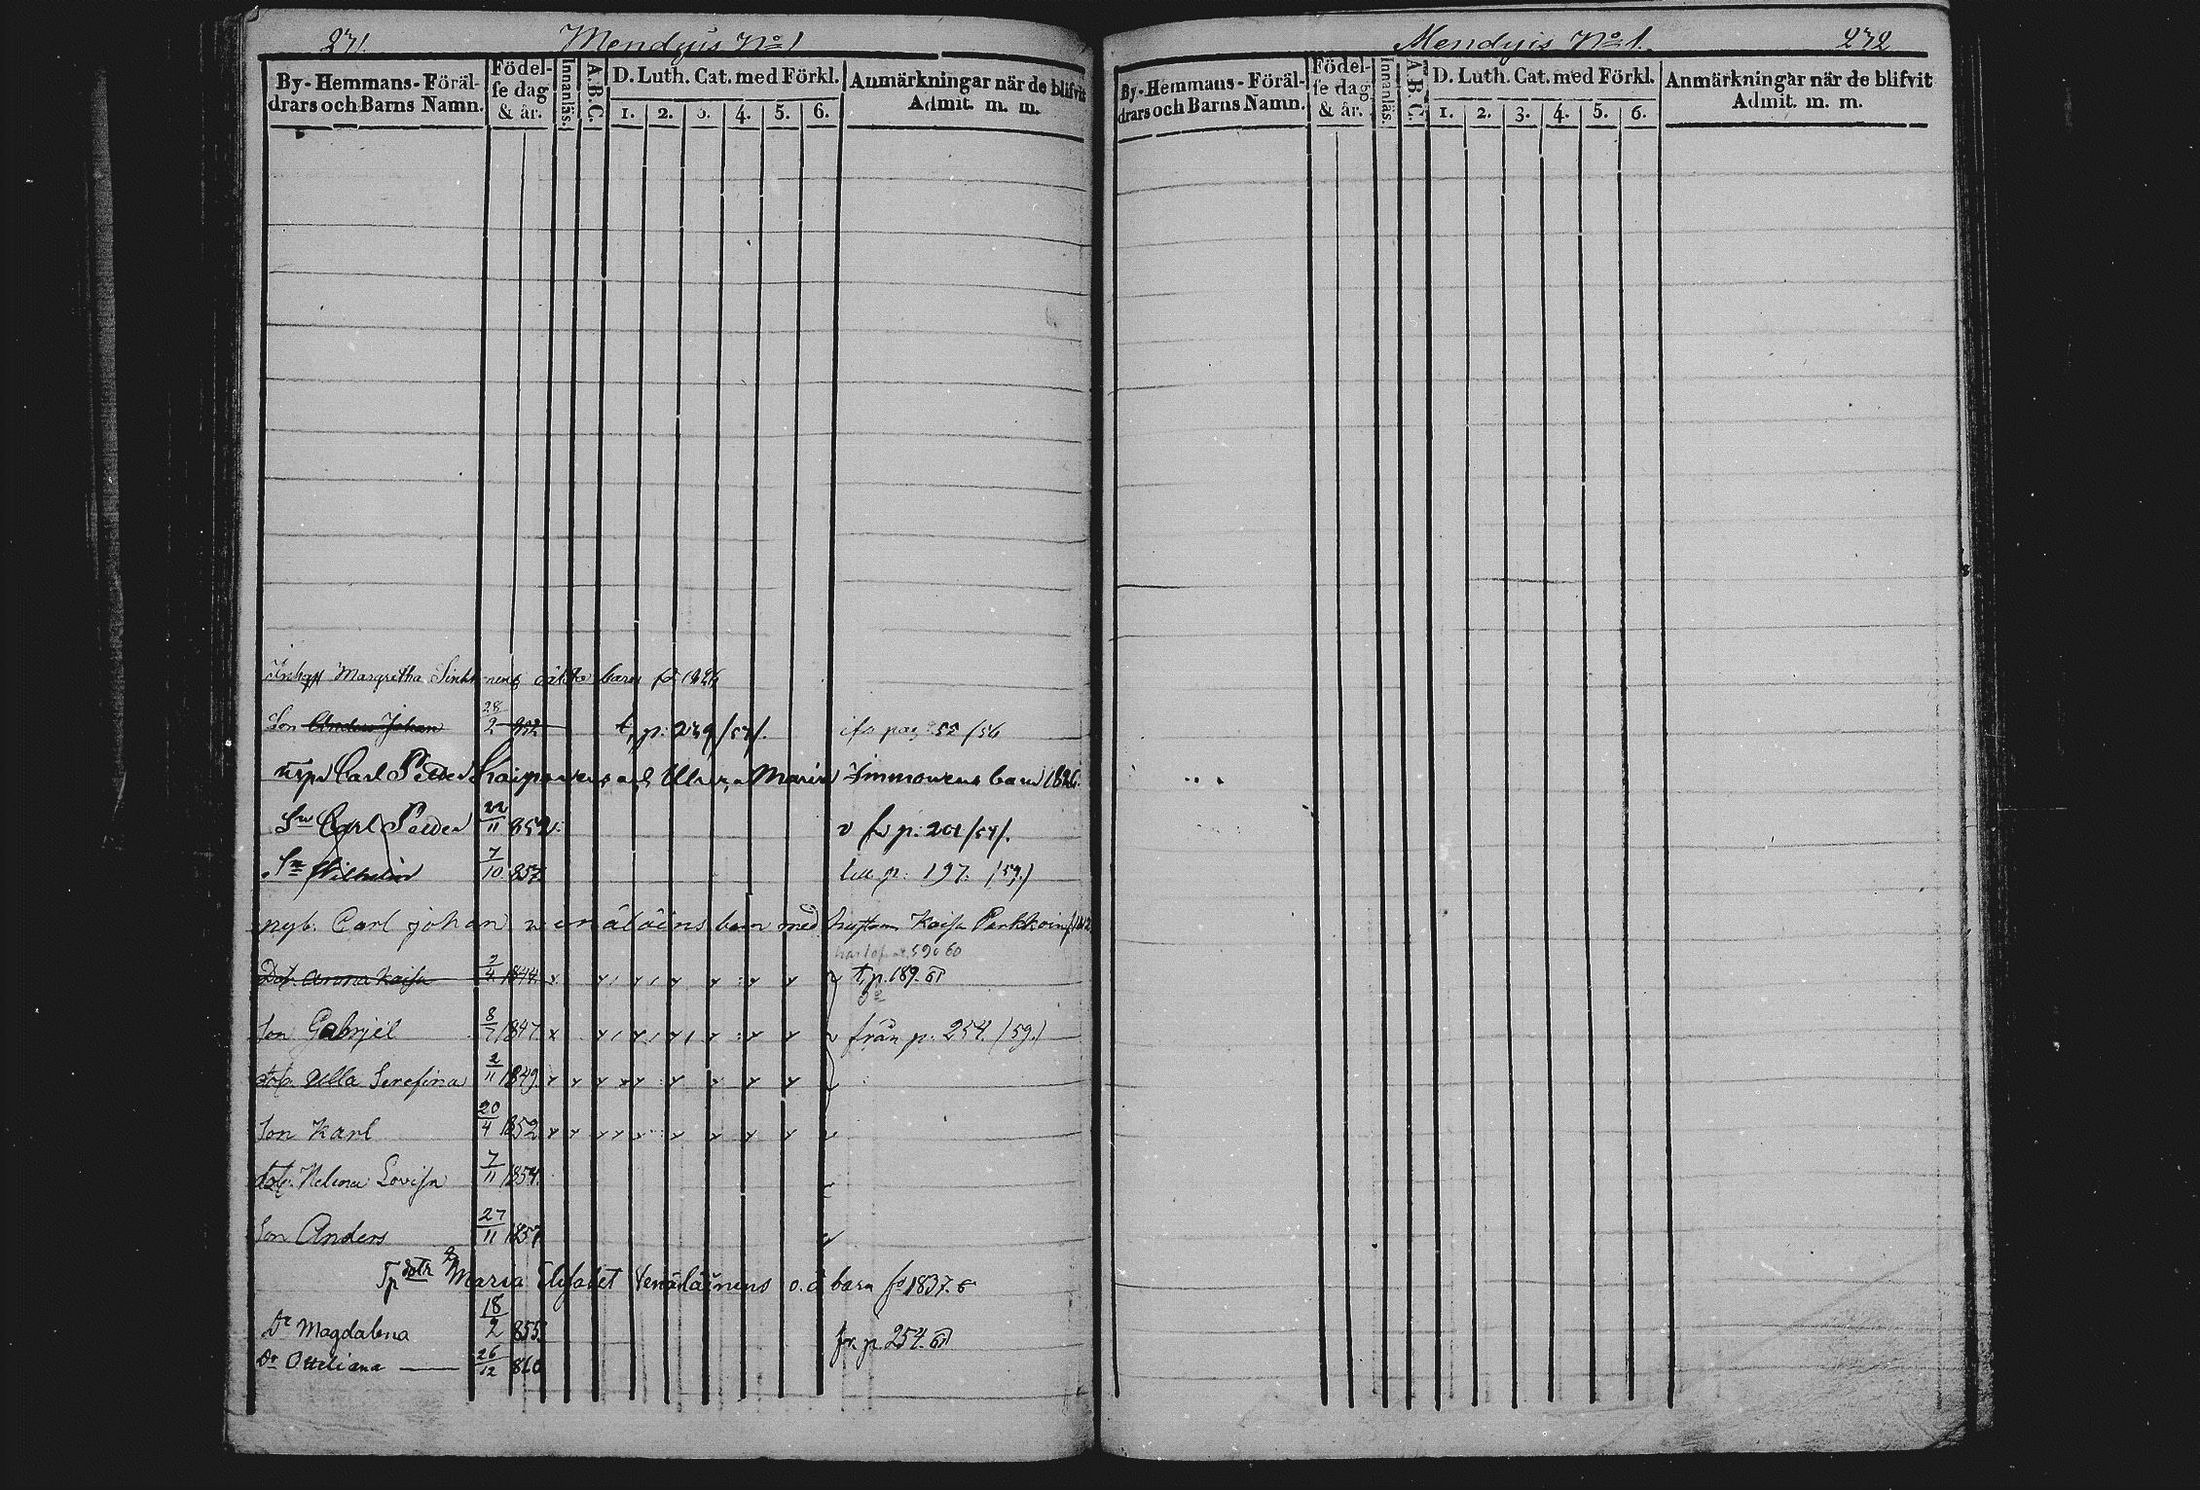 271. Mendyis No 1
By- Hemmans- Föräl-
drars och Barns Namn.
Födel-
se dag
& år.
Innanläs.
A.B.C.
D. Luth. Cat. med Förkl.
1. 2. 3. 4. 5. 6.
Anmärkningar när de blifvit
Admit. m. m.
Margretha oäkta barn
Son Anders Johan 28/2 852 t. p. 249/57/. 55/56
Carl Petter Maria Immonens barn
Sn Carl Petter 22/11 852. p. 201/57/.
Sn Wilhelm 7/10 857 till p. 197. (59.)
nyb. Carl johan wenäläins barn med hustrun Kaisa
59 o 60
Dotr. anna Kaisa 2/4 1844. t. p. 189. 61
Son Gabrjel 8/7 1847. från p. 254. (59.)
dotr. Ulla Serefina 2/11 1849.
Son Karl 20/4 1852
dotr. Helena Lovisa 7/11 1854.
Son Anders 27/11 1857
dotr Maria Elisabet Venäläinens o. ä barn fö 1837.
Dr Magdalena 18/2 855 fr. p. 254. 61
Dr Otteliana 26/12 860
Mendyis No 1. 272
By- Hemmans- Föräl-
drars och Barns Namn.
Födel-
se dag
& år.
Innanläs.
A.B.C.
D. Luth. Cat. med Förkl.
1. 2. 3. 4. 5. 6.
Anmärkningar när de blifvit
Admit. m. m.